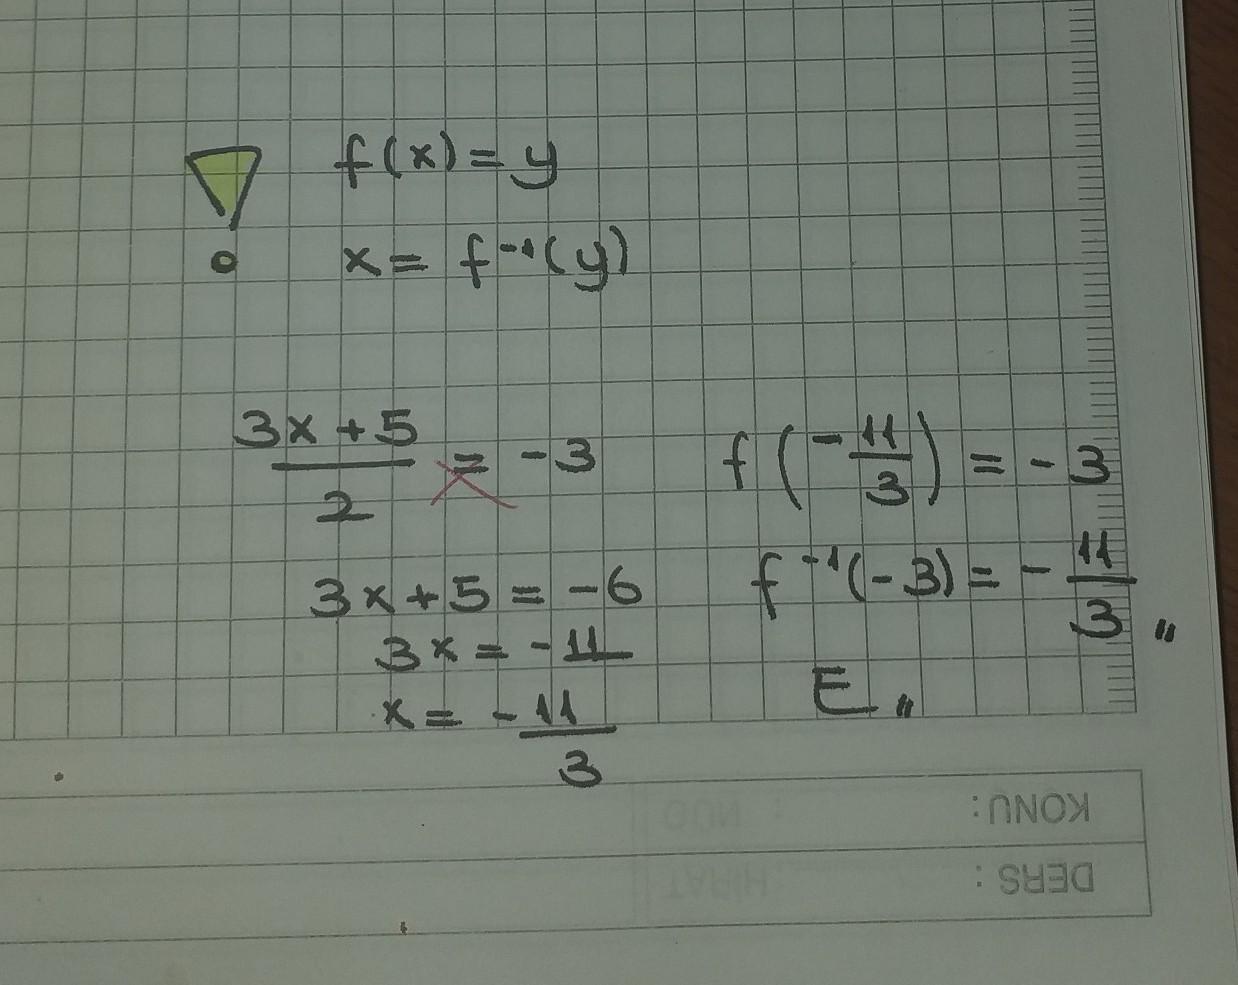 f(x) = y
x = f⁻¹(y)
3x + 5
2
= -3
3x + 5 = -6
3x = -11
x = -11
3
f(-11/3) = -3
f⁻¹(-3) = -11/3 "
E "
KONU:
DERS :